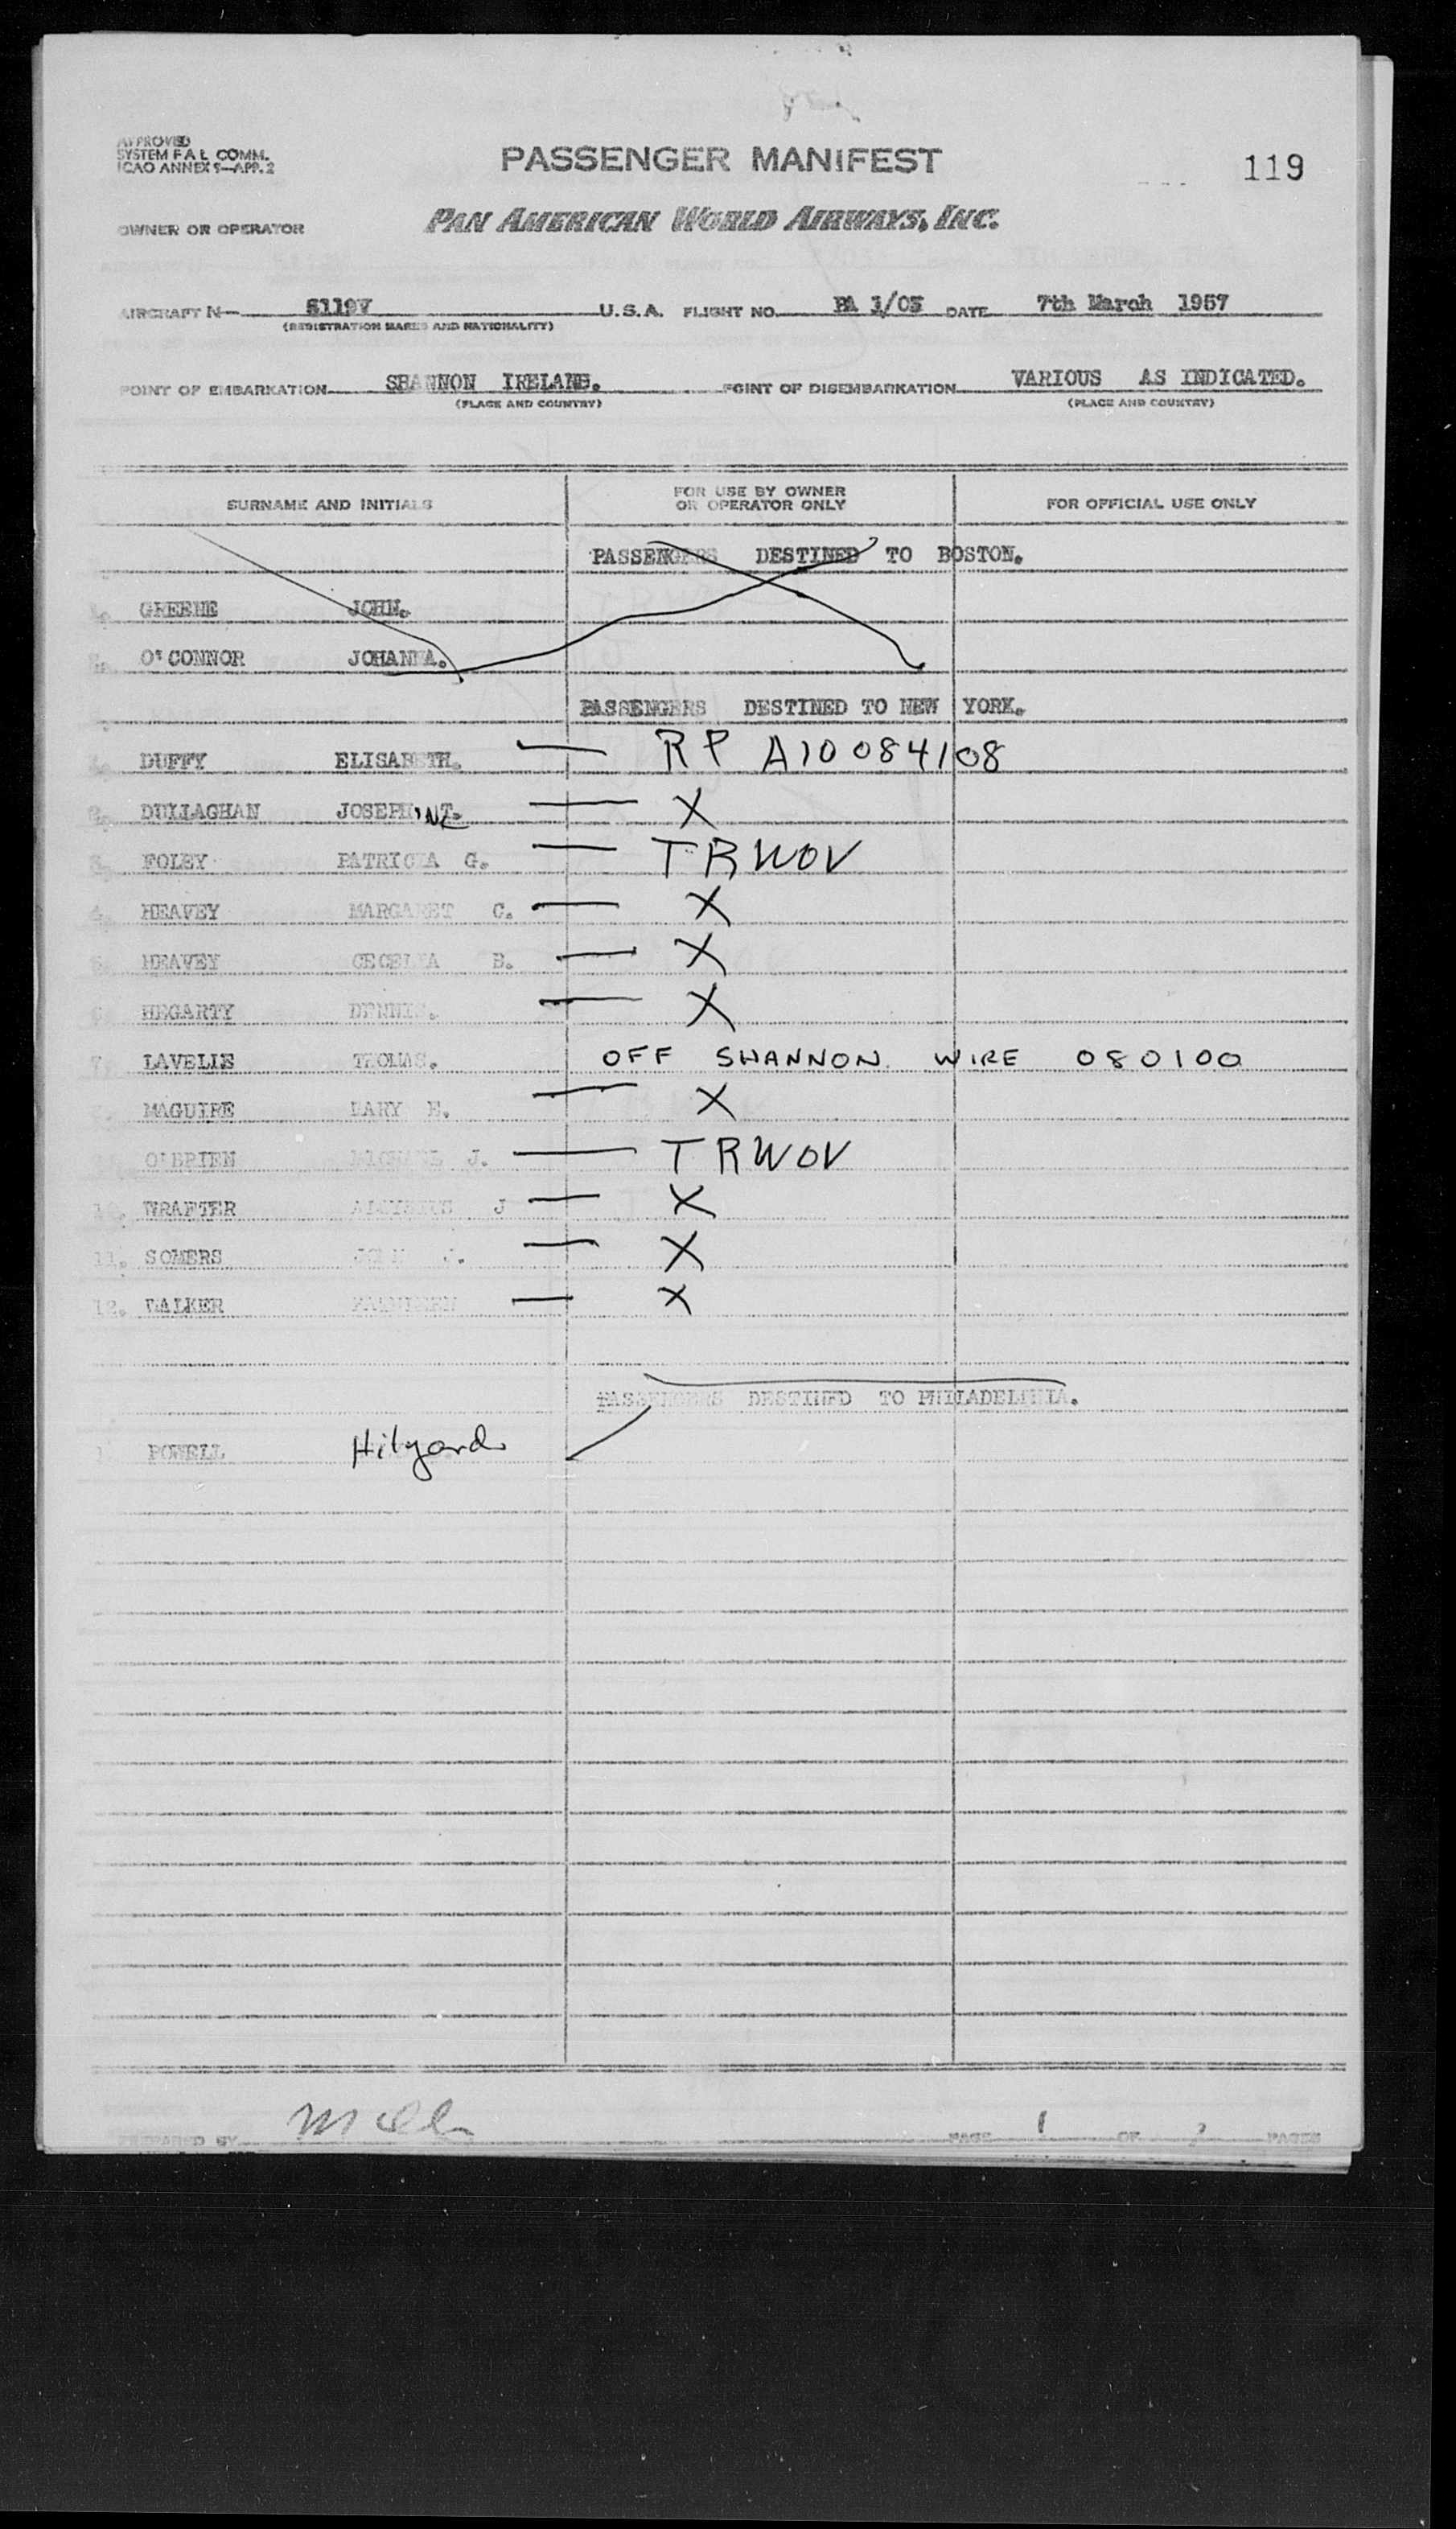 APPROVED
SYSTEM F A L COMM.
ICAO ANNEX 9—APP. 2
PASSENGER MANIFEST
119
OWNER OR OPERATOR
PAN AMERICAN WORLD AIRWAYS, INC.
AIRCRAFT N— 5119V U.S.A. FLIGHT NO. PA 1/05 DATE 7th March 1957
(REGISTRATION MARKS AND NATIONALITY)
POINT OF EMBARKATION SHANNON IRELAND. POINT OF DISEMBARKATION VARIOUS AS INDICATED.
(PLACE AND COUNTRY) (PLACE AND COUNTRY)
SURNAME AND INITIALS FOR USE BY OWNER OR OPERATOR ONLY FOR OFFICIAL USE ONLY
PASSENGERS DESTINED TO BOSTON.
1. GREENE JOHN.
2. O'CONNOR JOHANNA.
PASSENGERS DESTINED TO NEW YORK.
1. DUFFY ELISABETH. — RP A10084108
2. DULLAGHAN JOSEPHINE — X
3. FOLEY PATRICIA G. — TRWOV
4. HEAVEY MARGARET C. — X
5. HEAVEY CECELIA B. — X
6. HEGARTY DENNIS. — X
7. LAVELLE THOMAS. OFF SHANNON WIRE 080100
MAGUIRE MARY E. — X
O'BRIEN MICHAEL J. — TRWOV
10. WRAFTER J — X
11. SOMERS JOHN J. — X
12. WALKER — X
PASSENGERS DESTINED TO PHILADELPHIA.
1. POWELL Hilyard
PREPARED BY
PAGE 1 OF PAGES